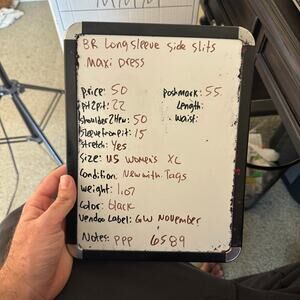 BR Long sleeve side slits
Maxi Dress
price: 50
postmark: 55
pit2pit: 22
Length:
Shoulder2Hem: 50
Waist:
Sleeve from pit: 15
Stretch: Yes
Size: US Women's XL
Condition: New with Tags
Weight: 1.07
Color: black
Vendoo Label: GW November
Notes: PPP 6589